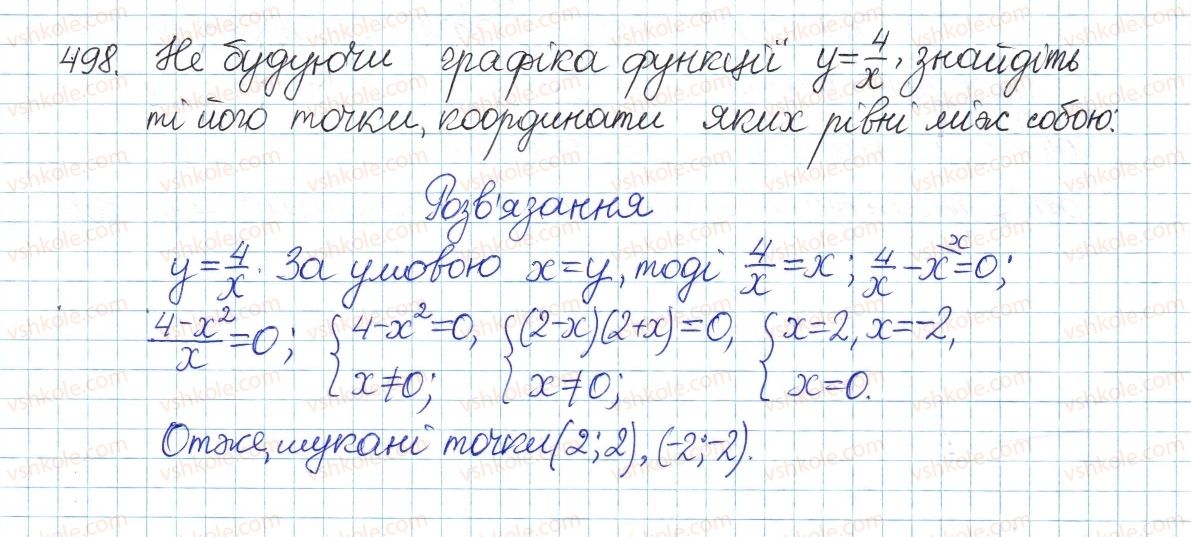 498. Не будуючи графіка функції y=4/x, знайдіть
ті його точки, координати яких рівні між собою:
Розв'язання
y=4/x. За умовою x=y, тоді 4/x=x; 4/x-x\x=0;
(4-x²)/x=0; {4-x²=0, x≠0; {(2-x)(2+x)=0, x≠0; {x=2, x=-2, x=0.
Отже, шукані точки (2;2), (-2;-2).
vshkole.com